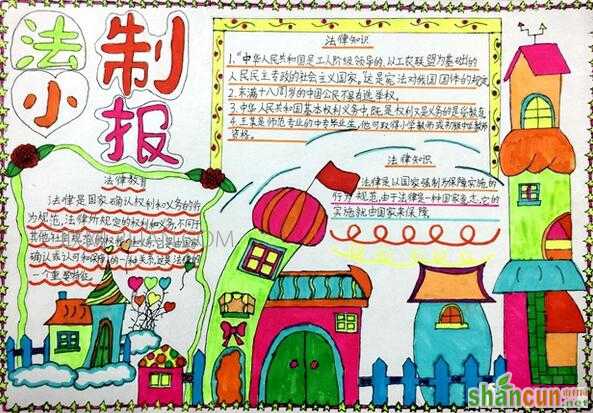 法制
小报
法律知识
1.“中华人民共和国是工人阶级领导的,以工农联盟为基础的
人民民主专政的社会主义国家,这是宪法对我国国体的规定
2.未满十八周岁的中国公民不具有选举权.
3.中华人民共和国基本权利义务中,既是权利又是义务的是受教育
4.王某是师范专业的中专毕业生,他可取得小学教师或初级中学教师
资格.
法律知识
法律是以国家强制力保障实施的
行为规范,由于法律是一种国家意志,它的
实施就由国家来保障
法律教育
法律是国家确认权利和义务的行
为规范,法律所规定的权利和义务,不同于
其他社会规范的权利义务,它是由国家
确认或认可和保障的一种关系,这是法律的
一个重要特征.
shancun
.net